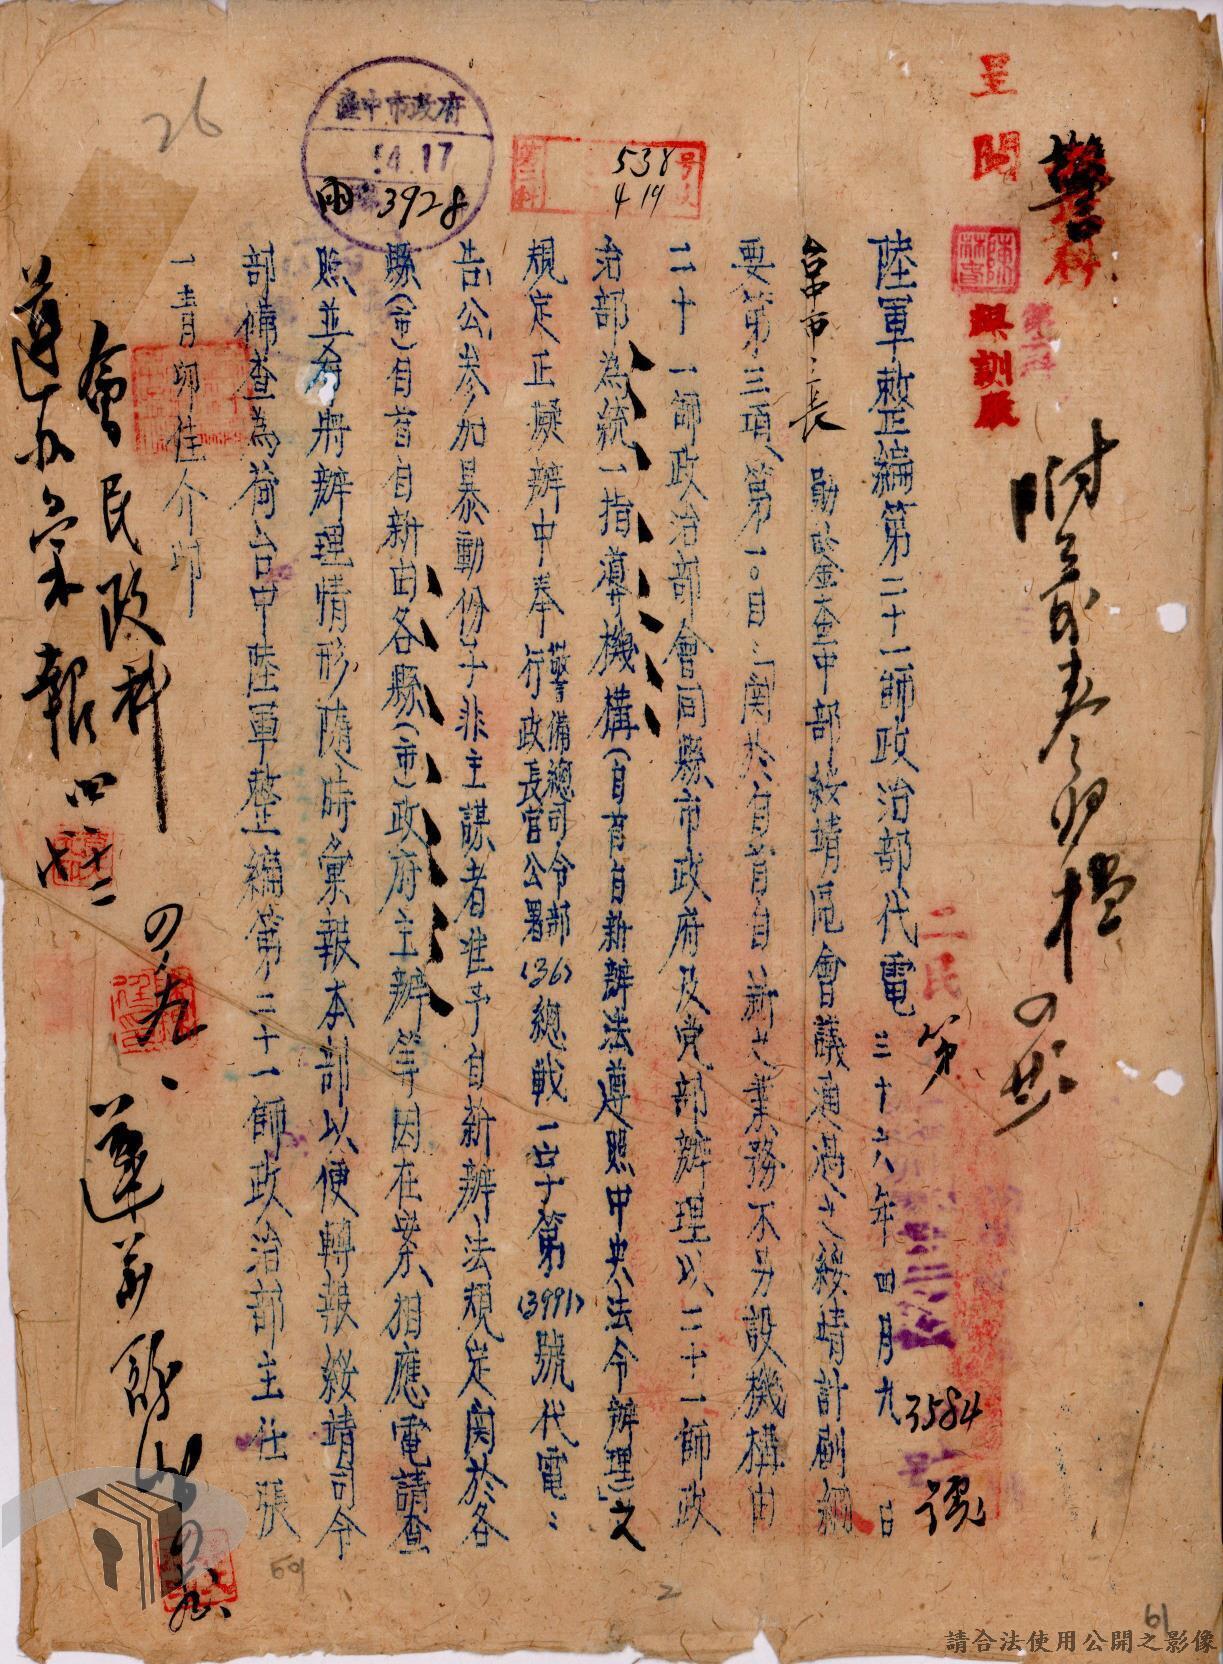 呈閱
警
科
第二科
課訓股
陸軍整編第二十一師政治部代電 三十六年四月九日
二民
第
3584
號
台中市長 勛鑒查中部綏靖區會議通過之綏靖計劃綱
要第三項第一〇目：「関於自首自新之業務不另設機構由
二十一師政治部會同縣市政府及党部辦理以二十一師政
治部為統一指導機構（自首自新辦法遵照中央法令辦理）」之
規定正擬辦中奉
警備總司令部
行政長官公署
(36)總戰一字第(3991)號代電：
告公参加暴動份子非主謀者准予自新辦法規定関於各
縣（市）自首自新由各縣（市）政府主辦等因在案相應電請查
照並希將辦理情形隨時彙報本部以便轉報綏靖司令
部備查為荷台中陸軍整編第二十一師政治部主任張
一青卯佳介印
會民政科
遵辦彙報
號次
538
4 19
第二科
臺中市政府
54.17
3928
26
2
61
請合法使用公開之影像